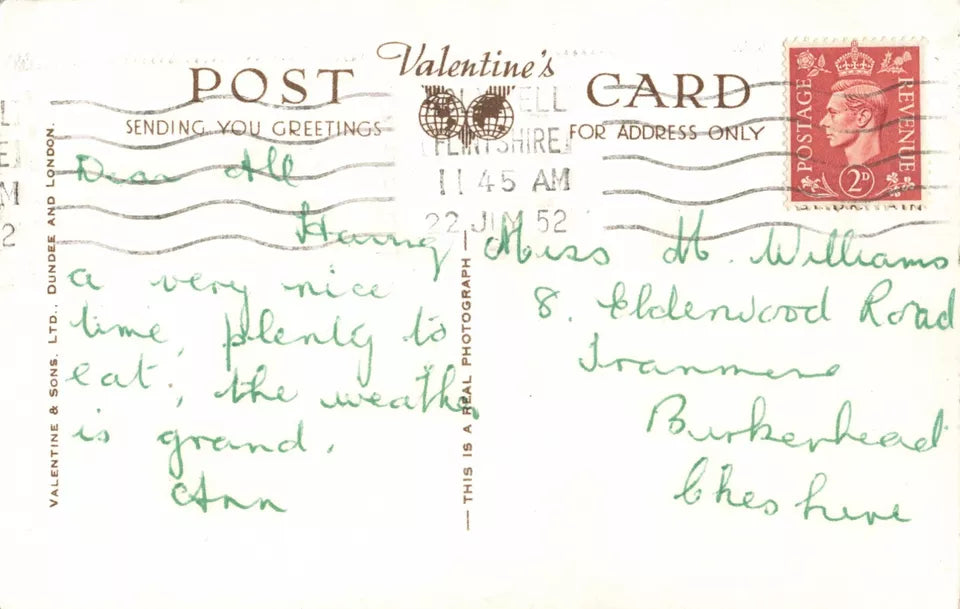 Valentine's
POST CARD
SENDING YOU GREETINGS
FOR ADDRESS ONLY
FLINTSHIRE
11 45 AM
22 52
POSTAGE
REVENUE
2D
VALENTINE & SONS, LTD., DUNDEE AND LONDON.
THIS IS A REAL PHOTOGRAPH
Dear All
Having
a very nice
time, plenty to
eat, the weather
is grand.
Ann
Miss M. Williams
8. Elderwood Road
Tranmere
Birkenhead
Cheshire